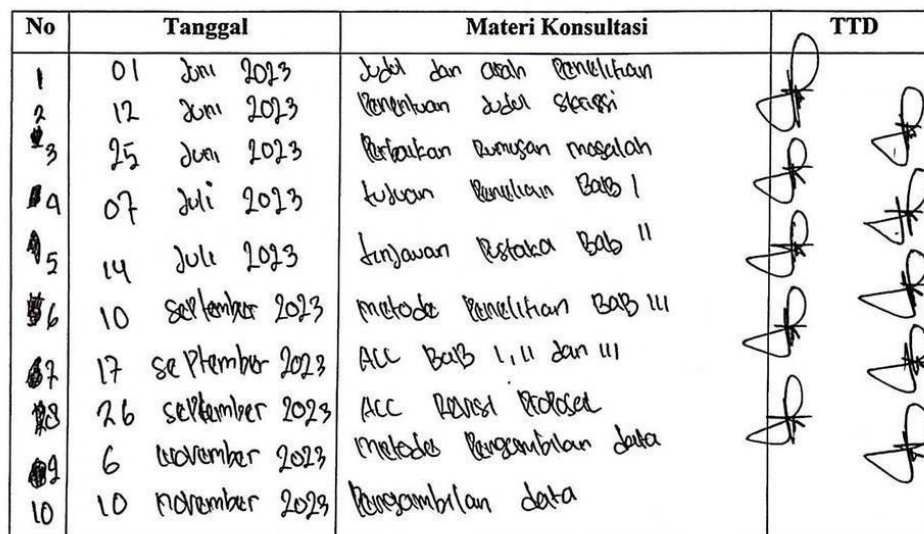 No Tanggal Materi Konsultasi TTD
1 01 Juni 2023 Judul dan arah Penelitian
2 12 Juni 2023 Penentuan Judul Skripsi
3 25 Juni 2023 Perbaikan Rumusan masalah
4 07 Juli 2023 tujuan Penelitian BAB I
5 14 Juli 2023 tinjauan Pustaka Bab II
6 10 September 2023 metode Penelitian BAB III
7 17 September 2023 ACC BAB I, II dan III
8 26 September 2023 ACC Revisi Proposal
9 6 November 2023 Metodes Pengambilan data
10 10 November 2023 Pengambilan data